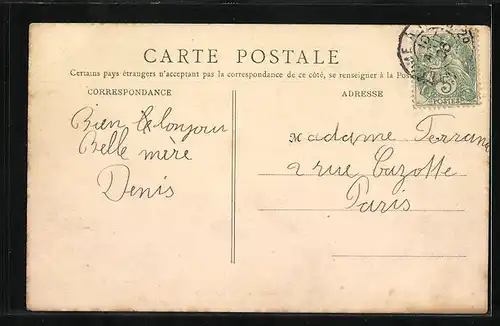 CARTE POSTALE
Certains pays étrangers n'acceptant pas la correspondance de ce côté, se renseigner à la Poste
CORRESPONDANCE
ADRESSE
Bien le bonjour
Belle mère
Denis
Madame
2 rue Cazotte
Paris
5
POSTES